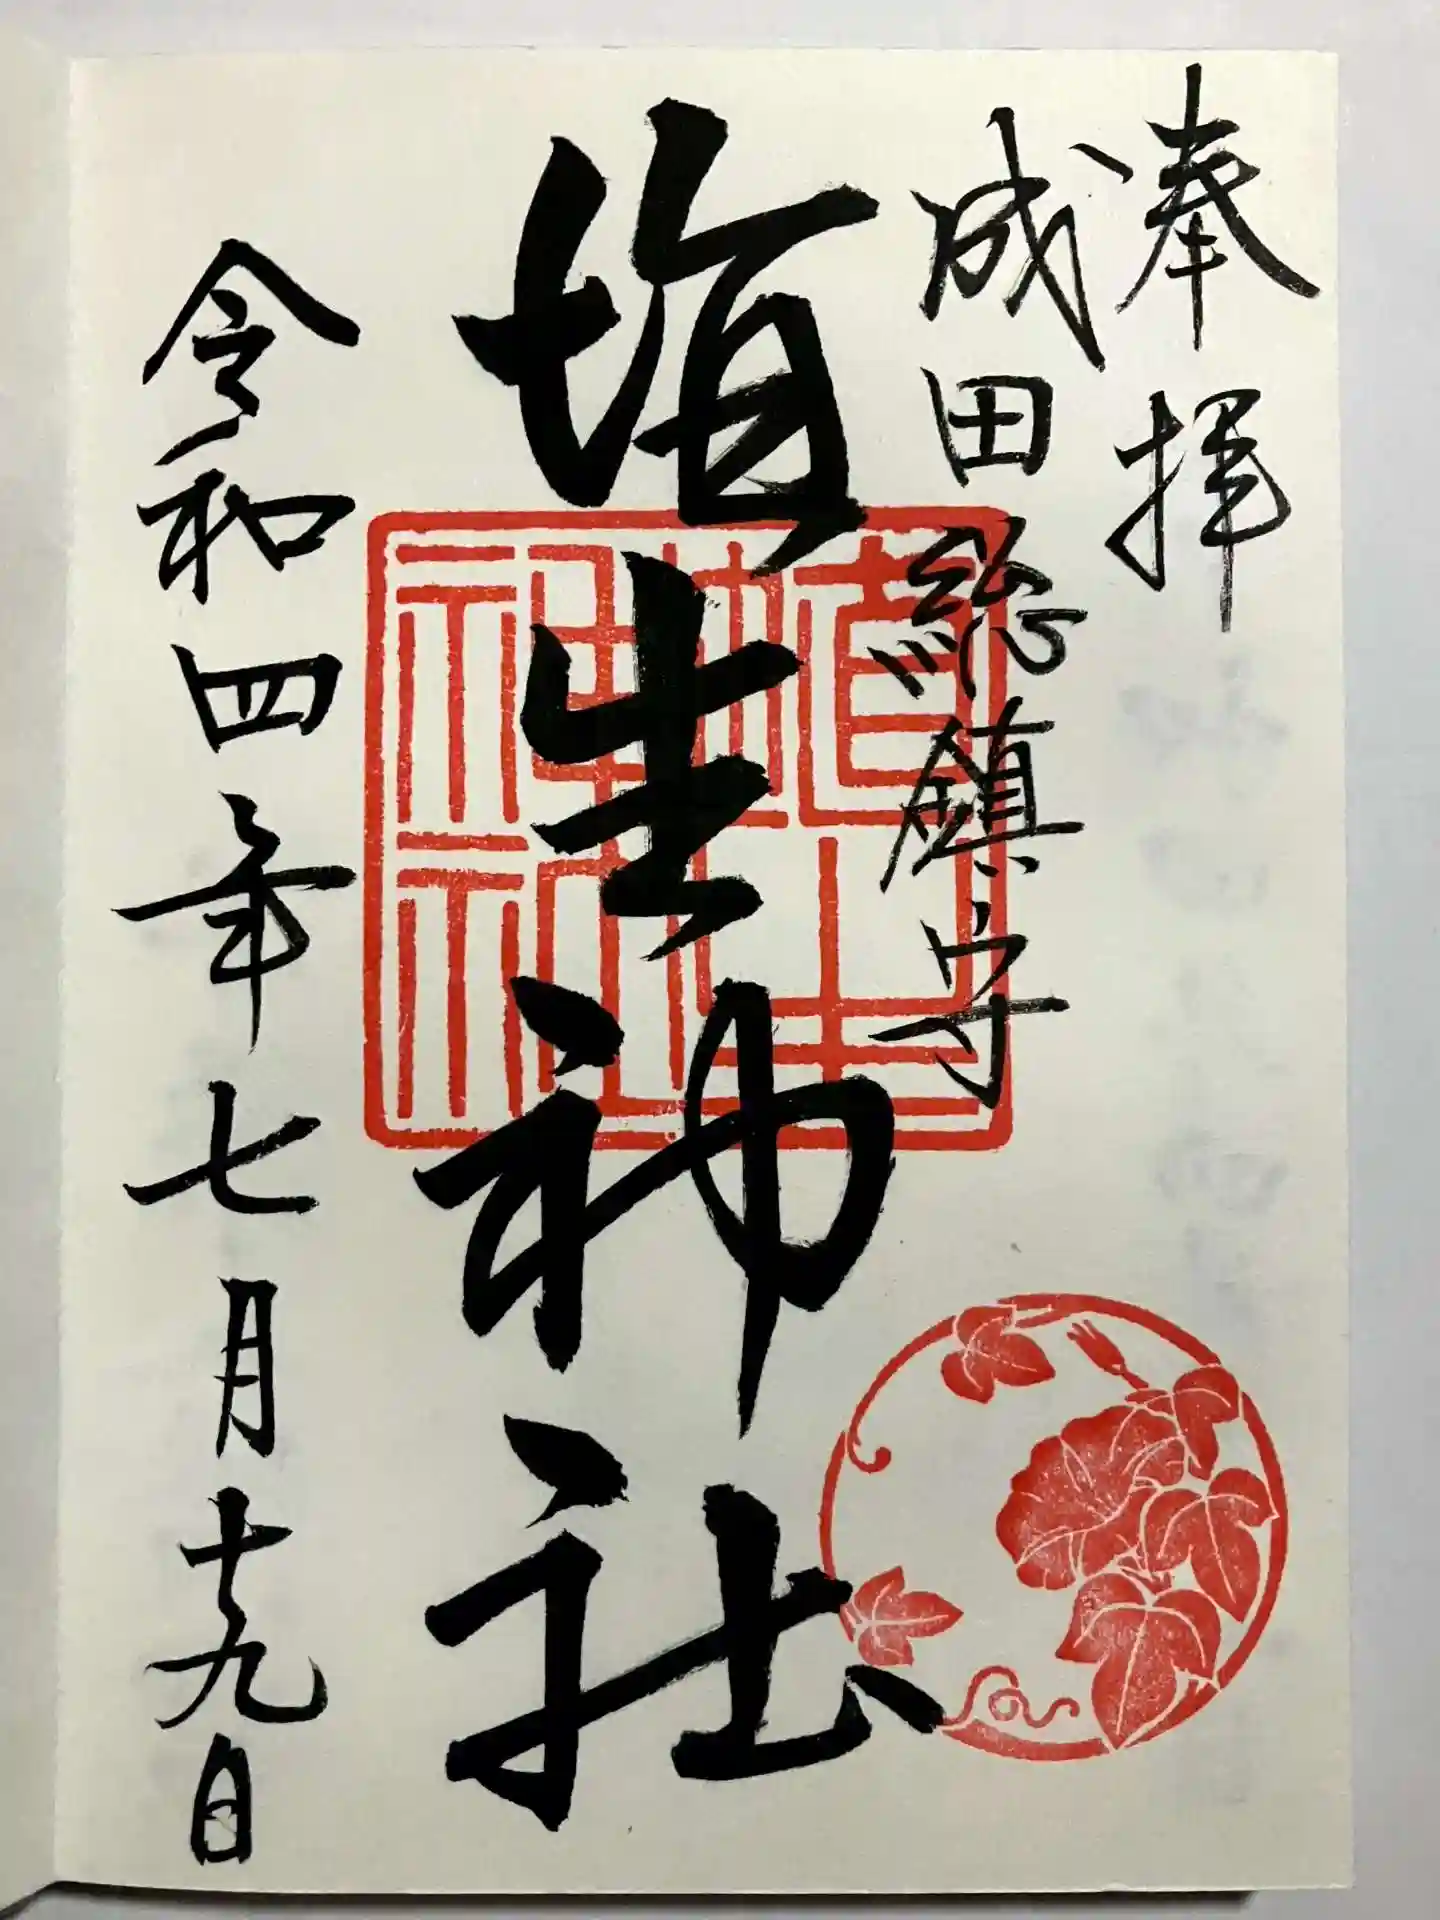 奉拝
成田総鎮守
埴生神社
埴生
神社
令和四年七月十九日